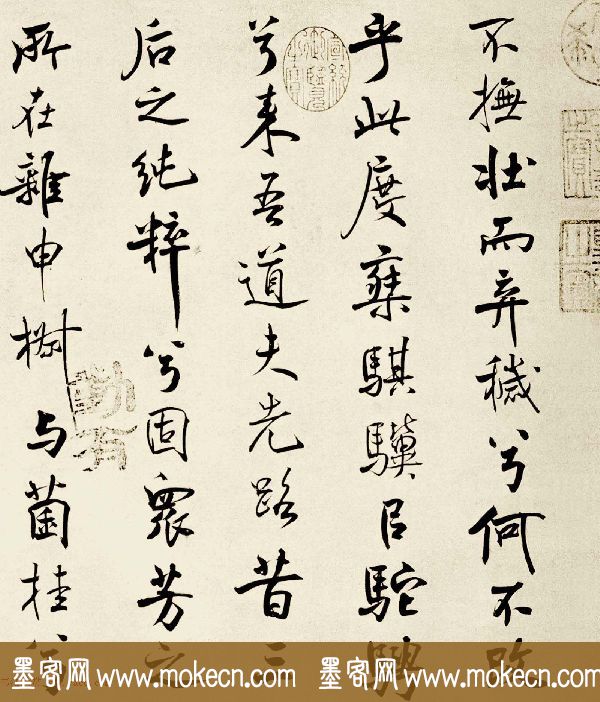 不撫壯而弃穢兮何不改
乎此度椉騏驥㠯駝騁
兮来吾道夫先路昔三
后之純粹兮固衆芳之
所在雜申椒与菌桂兮
墨客网 www.mokecn.com 墨客网 www.mokecn.com